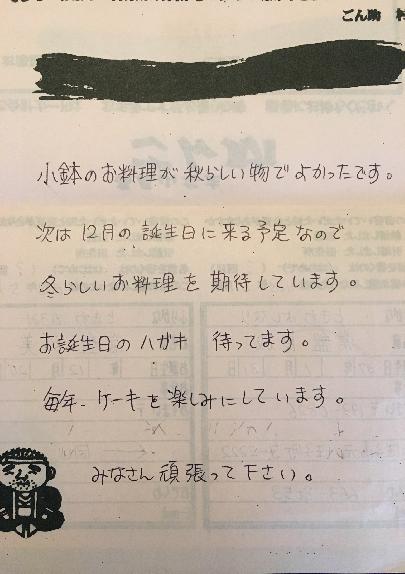 ごん助
小鉢のお料理が秋らしい物でよかったです。
次は12月の誕生日に来る予定なので
冬らしいお料理を期待しています。
お誕生日のハガキ 待ってます。
毎年、ケーキを楽しみにしています。
みなさん頑張って下さい。